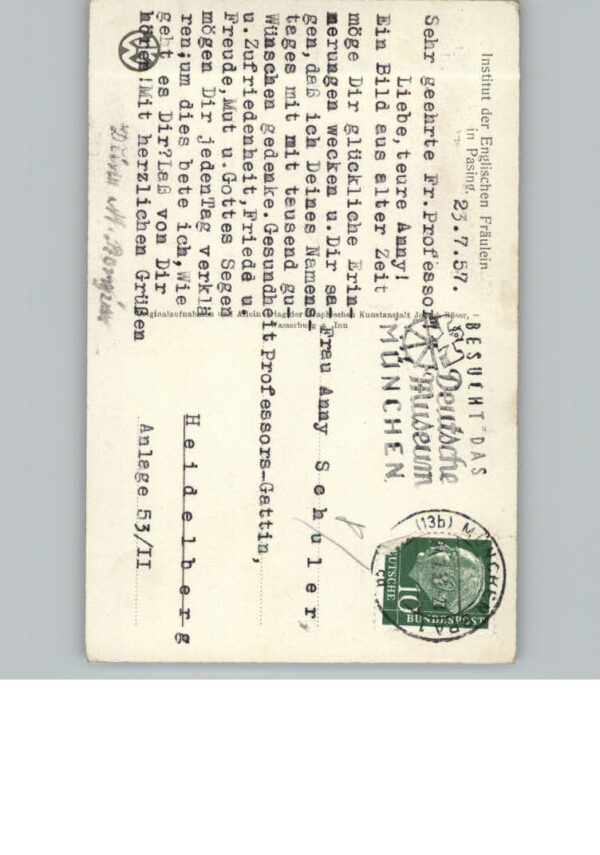 Institut der Englischen Fräulein
in Pasing.
23.7.57.
Sehr geehrte Fr.Professor!
Liebe,teure Anny!
Ein Bild aus alter Zeit
möge Dir glückliche Erin-
nerungen wecken u.Dir sa-
gen,daß ich Deines Namens-
tages mit mit tausend gu-
Wünschen gedenke.Gesundheit
u.Zufriedenheit,Friede u.
Freude,Mut u.Gottes Segen
mögen Dir jedenTag verklä
ren;um dies bete ich,Wie
geht es Dir?Laß von Dir
hören!Mit herzlichen Grüßen
Originalaufnahmen und Allein-Verlag der Graphischen Kunstanstalt
Wasserburg a. Inn
BESUCHT DAS
Deutsche
Museum
MÜNCHEN
(13b) MÜNCHEN
10
DEUTSCHE
BUNDESPOST
Frau Anny Schuler
Professors-Gattin,
Heidelberg
Anlage 53/II